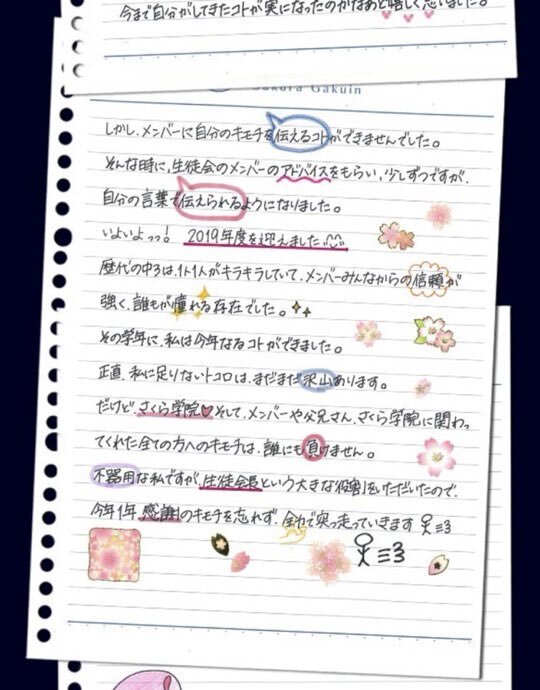 今まで自分がしてきたコトが実になったのかなあと嬉しく思いました。
Sakura Gakuin
しかし、メンバーに自分のキモチを伝えるコトができませんでした。
そんな時に、生徒会のメンバーのアドバイスをもらい、少しずつですが、
自分の言葉で伝えられるようになりました。
いよいよっっ! 2019年度を迎えました
歴代の中3は、1人1人がキラキラしていて、メンバーみんなからの信頼が
強く、誰もが憧れる存在でした。
その学年に、私は今年なるコトができました。
正直、私に足りないトコロは、まだまだ沢山あります。
だけど、さくら学院♥そして、メンバーや父兄さん、さくら学院に関わっ
てくれた全ての方へのキモチは、誰にも負けません。
不器用な私ですが、生徒会長という大きな役割をいただいたので、
今年1年、感謝のキモチを忘れず、全力で突っ走っていきます